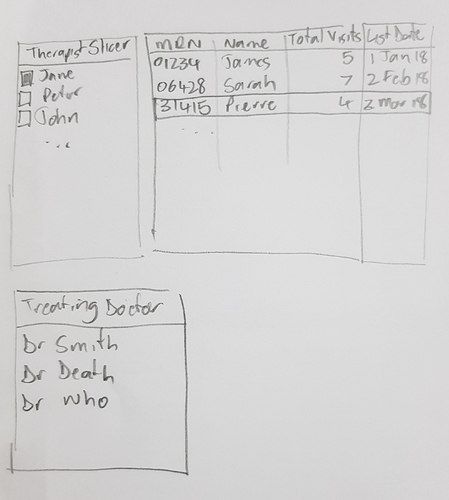 Therapist Slicer
Jane
Peter
John
...
MRN Name Total Visits Last Date
01234 James 5 1 Jan 18
06428 Sarah 7 2 Feb 18
31415 Pierre 4 2 Mar 18
...
Treating Doctor
Dr Smith
Dr Death
Dr Who